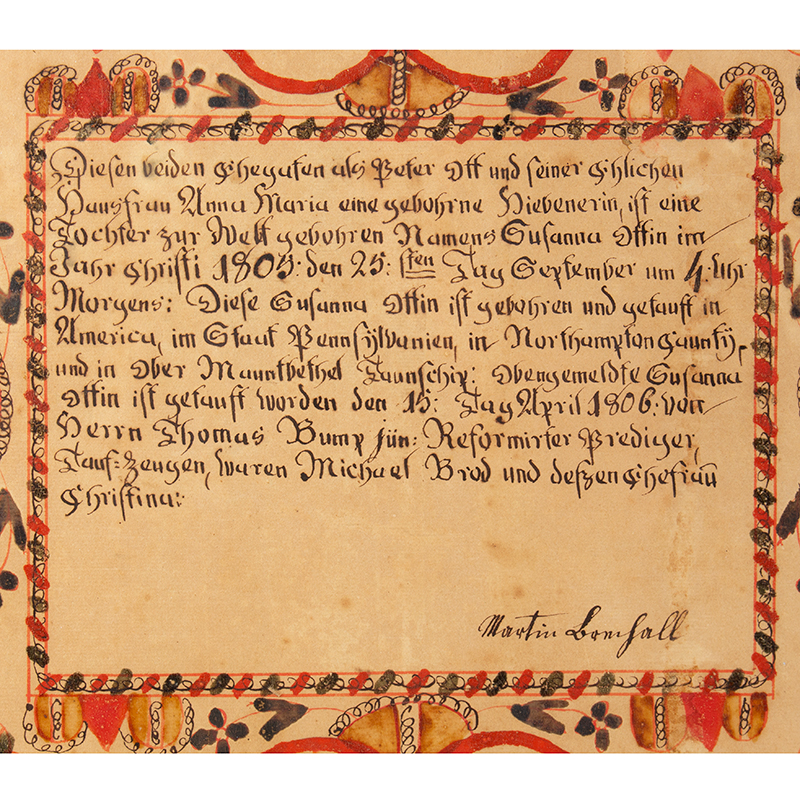 Diesen beiden Ehegaten als Peter Ott und seiner Ehlichen
Hausfrau Anna Maria eine gebohrne Hiebenerin, ist eine
Tochter zur Welt gebohren Namens Susanna Ottin im
Jahr Christi 1805: den 25: sten Tag September um 4: Uhr
Morgens: Diese Susanna Ottin ist gebohren und getauft in
America, im Staat Pennsÿlvanien, in Northampton Caunty,
und in Ober Mauntbethel Taunschip: Obengemeldte Susanna
Ottin ist getauft worden den 15: Tag April 1806: von
Herrn Thomas Bump jün: Reformirter Prediger,
Tauf=Zeugen, waren Michael Brod und deßen Ehefrau
Christina:
Martin Brechall